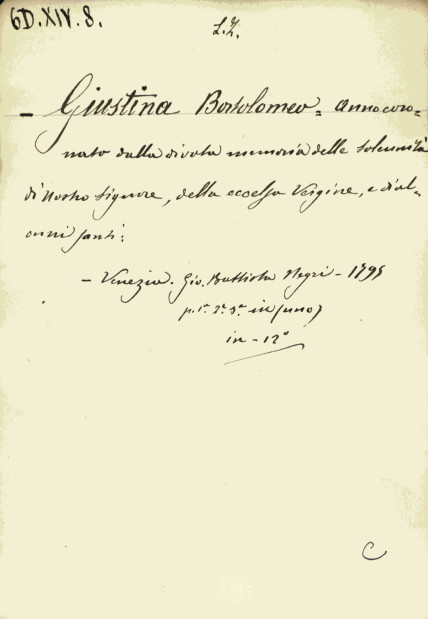 6D.XIV.8.
L.Z.
- Giustina Bortolomeo = Anno coro=
nato dalla divota memoria delle solennità
di Nostro Signore, della eccelsa Vergine, e d'al-
cuni santi:
- Venezia. Gio. Battista Negri - 1795
p. 1ª 2ª 3ª in (uno)
in - 12º
C